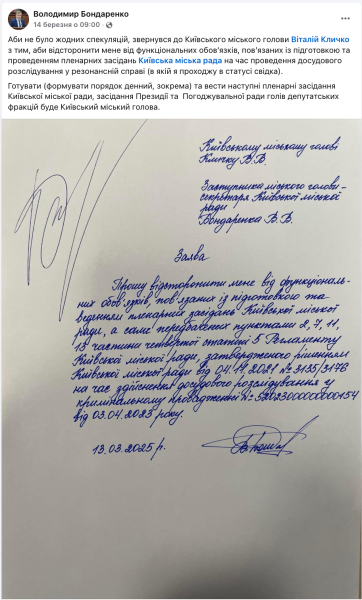 Володимир Бондаренко
14 березня о 09:00
Аби не було жодних спекуляцій, звернувся до Київського міського голови Віталій Кличко
з тим, аби відсторонити мене від функціональних обов'язків, пов'язаних із підготовкою та
проведенням пленарних засідань Київська міська рада на час проведення досудового
розслідування у резонансній справі (в якій я проходжу в статусі свідка).
Готувати (формувати порядок денний, зокрема) та вести наступні пленарні засідання
Київської міської ради, засідання Президії та Погоджувальної ради голів депутатських
фракцій буде Київський міський голова.
Київському міському голові
Кличку В.В.
Заступника міського голови –
секретаря Київської міської
ради
Бондаренка В.В.
Заява
Прошу відсторонити мене від функціональ-
них обов'язків, пов'язаних із підготовкою та
веденням пленарних засідань Київської міської
ради, а саме передбачених пунктами 2, 7, 11,
13 частини четвертої статті 5 Регламенту
Київської міської ради, затвердженого рішенням
Київської міської ради від 04.11.2021 № 3135/3176
на час здійснення досудового розслідування у
кримінальному провадженні №
від 03.04.2023 року
13.03.2025 р.